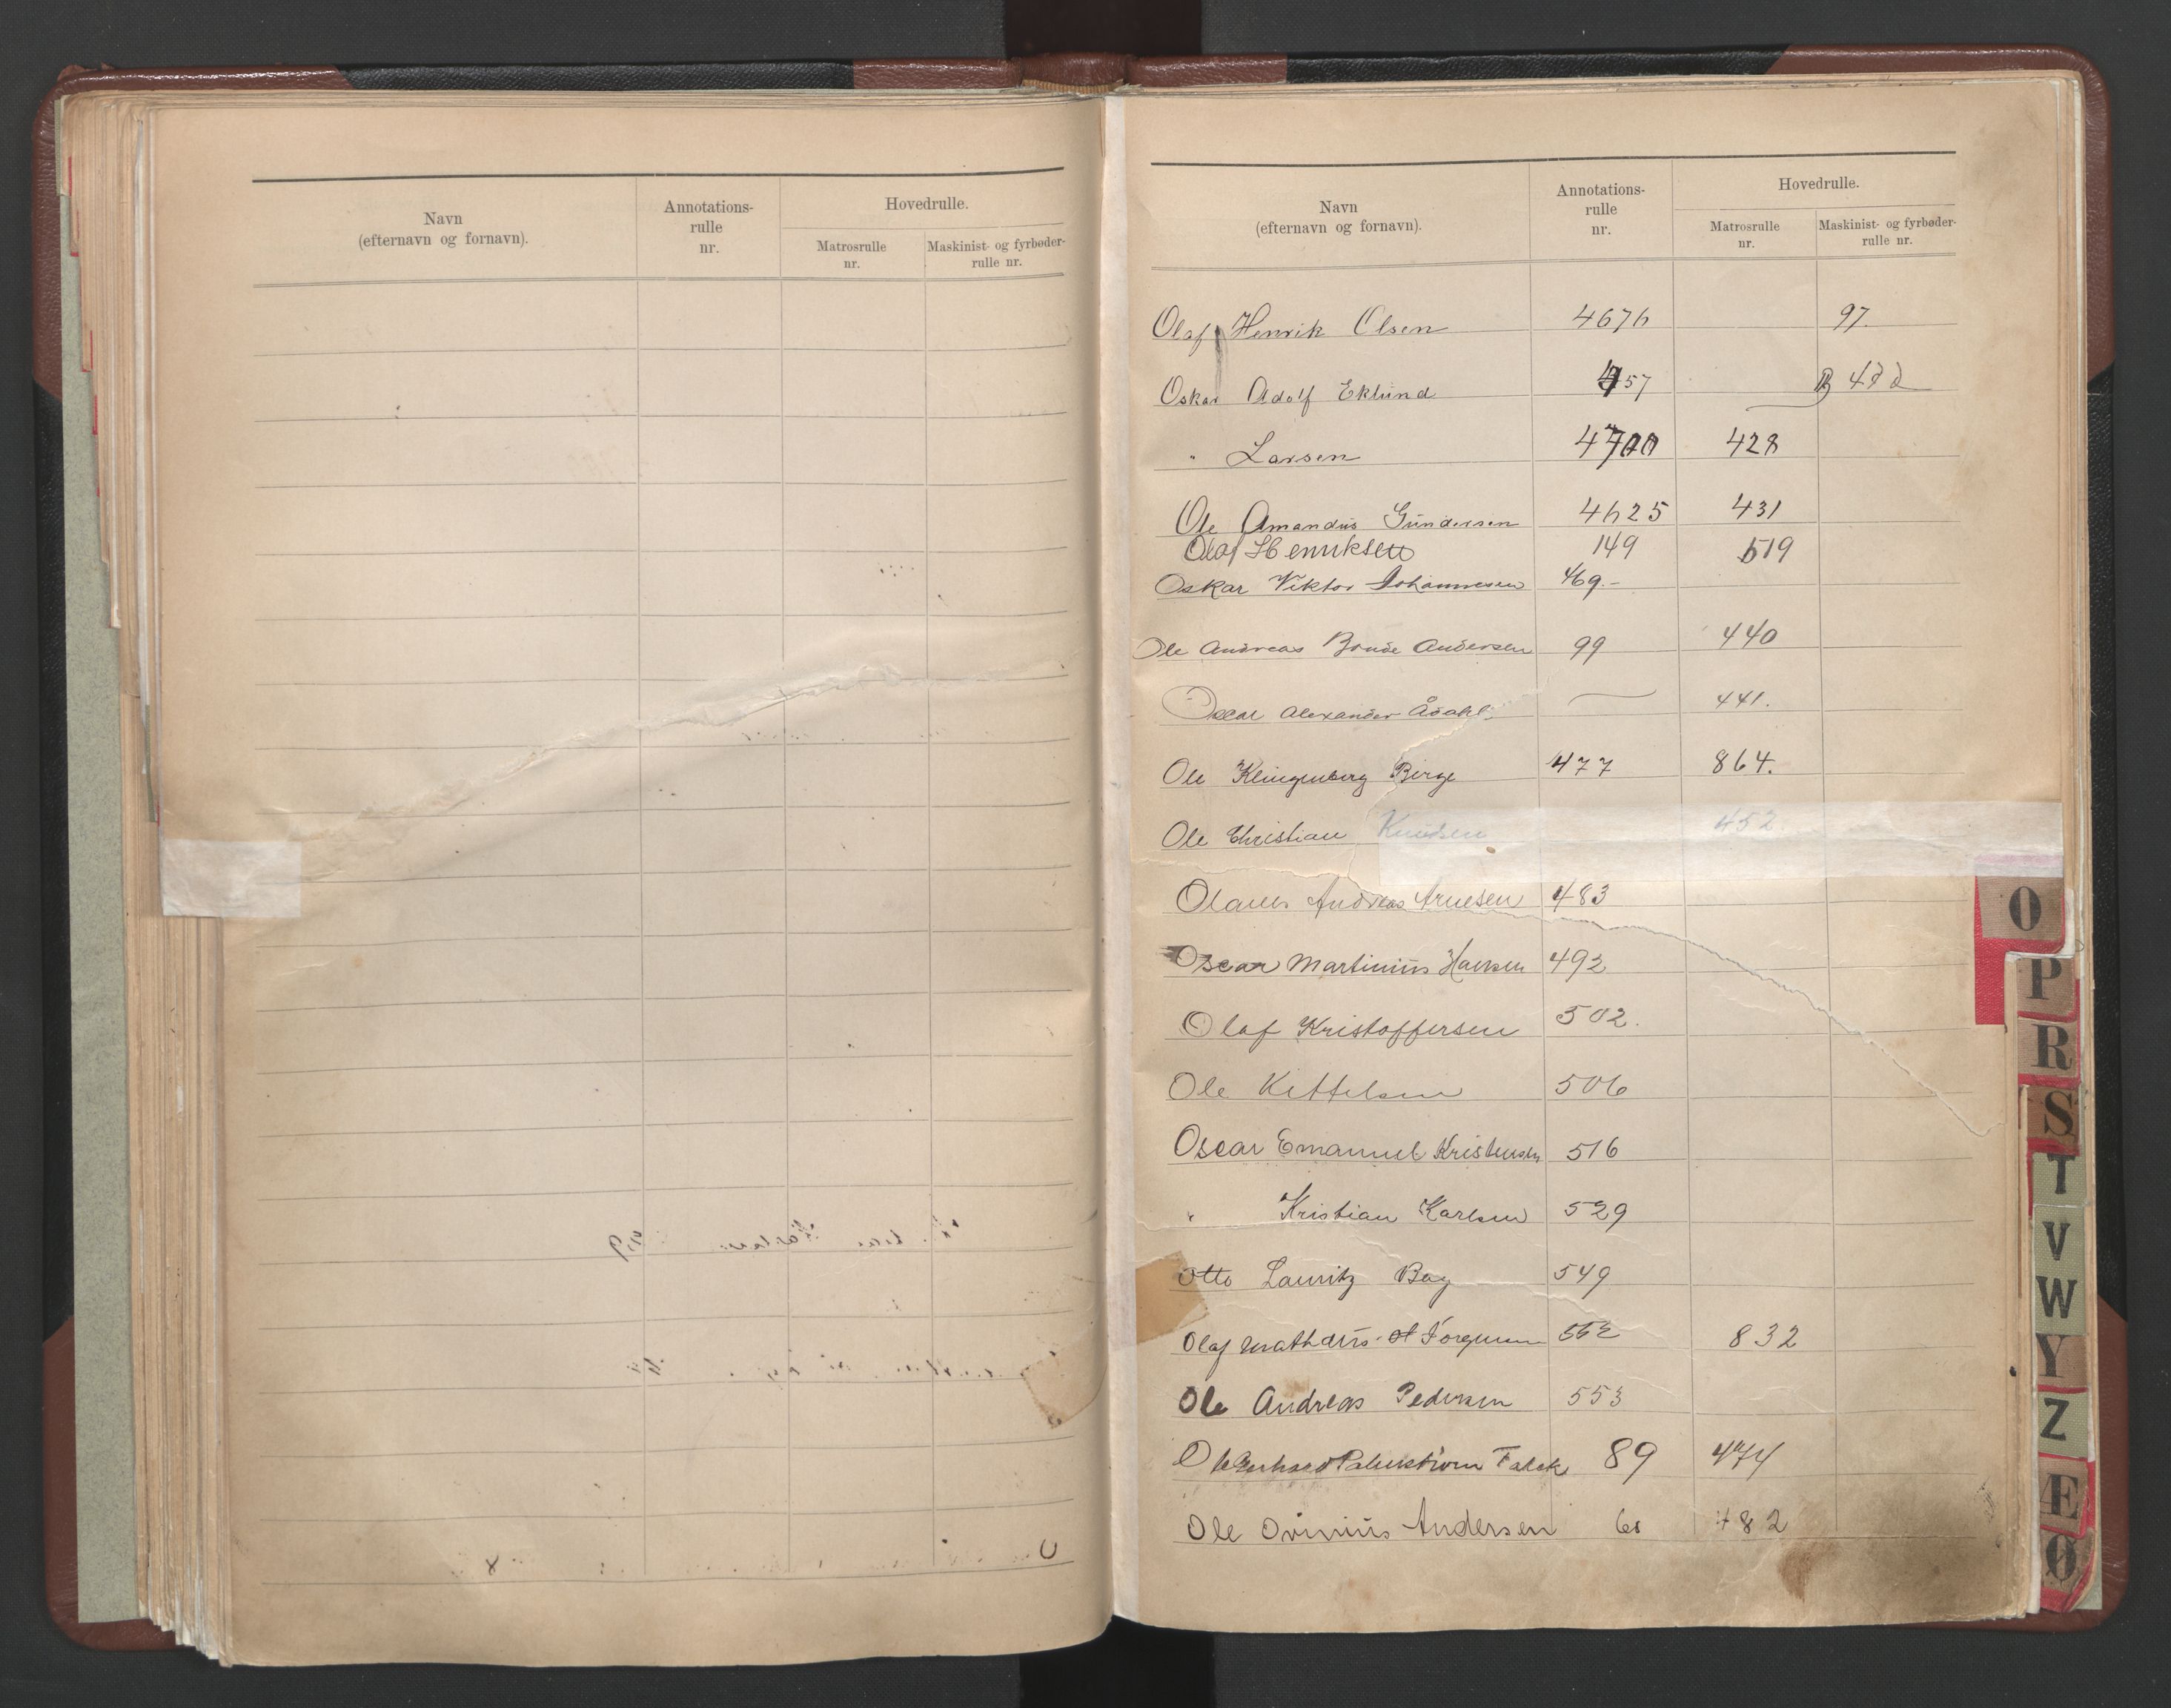 Navn
(efternavn og fornavn).
Annotations-
rulle
nr.
Hovedrulle.
Matrosrulle
nr.
Maskinist- og fyrbøder-
rulle nr.
Navn
(efternavn og fornavn).
Annotations-
rulle
nr.
Hovedrulle.
Matrosrulle
nr.
Maskinist- og fyrbøder-
rulle nr.
Olaf Henrik Olsen 4676 97.
Oskar Adolf Eklund 457 B
" Larsen 4700 428
Ole Amandus Gundersen 4625 431
Olaf Henriksen 149 519
Oskar Viktor Johannesen 469.-
Ole Andreas Bonde Andersen 99 440
Oscar Alexander Ådahl. 441.
Ole Klingenberg Birge 477 864.
Ole Christian Knudsen 452
Olaus Andreas Arnesen 483
Oscar Martinius Hansen 492
Olaf Kristoffersen 502.
Ole Kettelsen 506
Oscar Emanuel Kristensen 516
" Kristian Karlsen 529
Otto Lauritz Bay 549
Olaf 552 832
Ole Andreas Pedersen 553
Falck 89 474
Ole Andersen 482
O
P
R
S
T
V
W
Y
Z
Æ
Ø